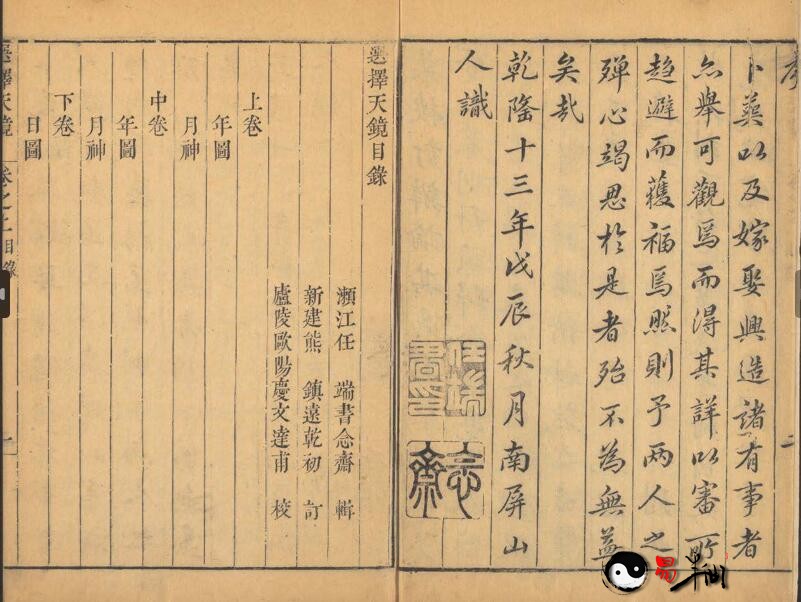 二
卜葬以及嫁娶興造諸有事者
亦舉可觀焉而得其詳以審所
趨避而獲福焉然則予两人之
殫心竭思於是者殆不為無益
矣哉
乾隆十三年戊辰秋月南屏山
人識
任端書印
念齋
選擇天鏡目錄
瀨江任 端書念齋 輯
新建熊 鎮遠乾初 訂
廬陵歐陽慶文達甫 校
上卷
年圖
月神
中卷
年圖
月神
下卷
日圖
選擇天鏡 卷之上目錄 一